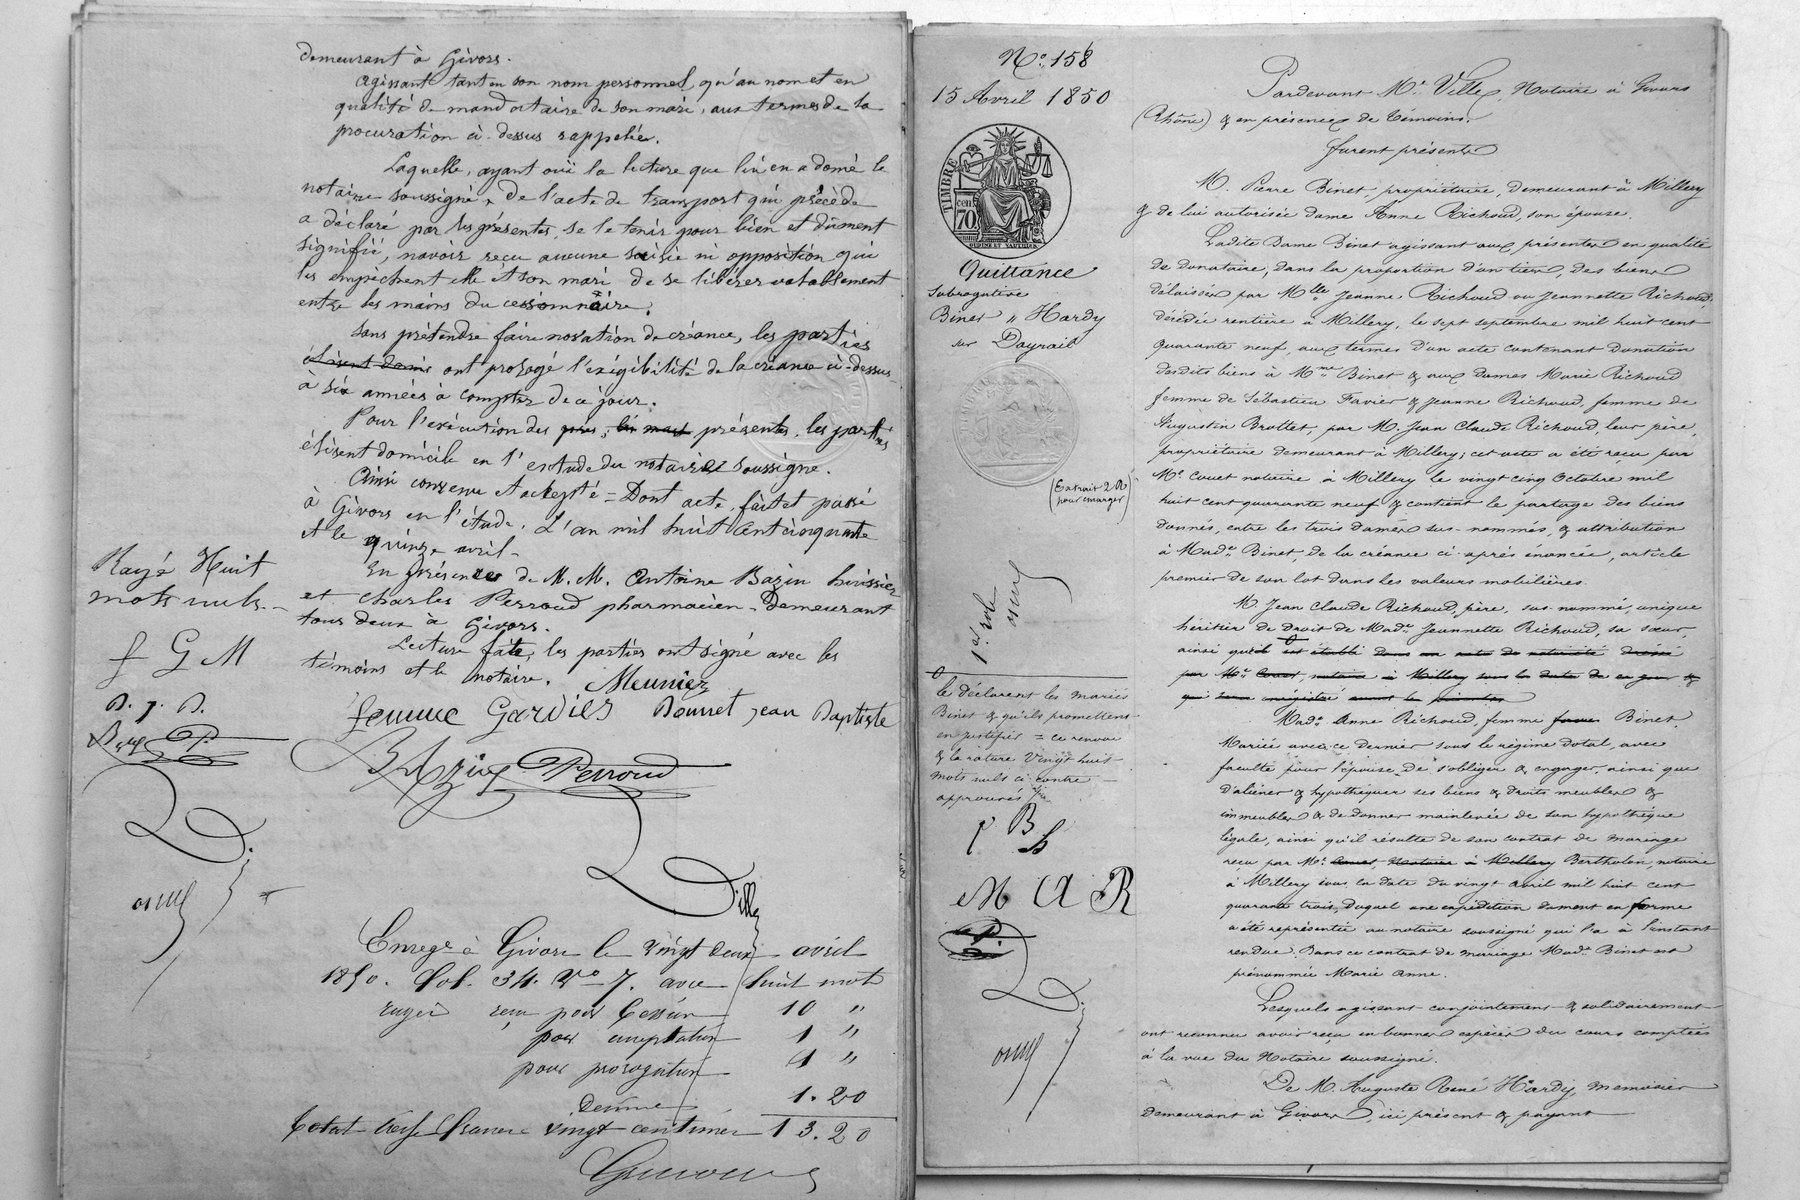 demeurant à Givors.
agissant tant en son nom personnel qu'au nom et en
qualité de mandataire de son mari, aux termes de la
procuration ci-dessus rappelée.
Laquelle, ayant ouï la lecture que lui en a donné le
notaire soussigné, de l'acte de transport qui précède
a déclaré par les présentes, se le tenir pour bien et dûment
signifié, n'avoir reçu aucune saisie ni opposition qui
les empêchent elle et son mari de se libérer valablement
entre les mains du cessionnaire.
Sans prétendre faire novation de créance, les parties
élisent domi ont prorogé l'exigibilité de la créance ci-dessus
à six années à compter de ce jour.
Pour l'exécution des pres, présentes, les parties
élisent domicile en l'estude du notaire soussigné.
Ainsi convenu et accepté = Dont acte, fait et passé
à Givors en l'étude. L'an mil huit cent cinquante
et le quinze avril.
En présence de M.M. Antoine Bazin huissier
et Charles Perroud pharmacien - Demeurant
tous deux à Givors.
Lecture faite, les parties ont signé avec les
témoins et le notaire. Meunier
femme Gardies Donnet Jean Baptiste
Bazin Perroud
Ville
Rayé Huit
mots nuls.
f G M
D. J. B.
B P.
Enregé à Givors le vingt deux avril
1850. fol. 34. Vo 7. avec huit mots
rayés reçu pour Cession 10 "
pour acceptation 1 "
pour prorogation 1 "
Décime 1.20
Total treize francs vingt centimes 13.20
No. 158
15 Avril 1850
TIMBRE
cen
70
Quittance
Subrogative
Binet " Hardy
sur Dayrail
(Extrait 2 R
pour emarger)
1er role
le déclarent les mariés
Binet & qu'ils promettent
en justifier = ce renvoi
& la rature Vingt huit
mots nuls ci contre
approuvés
P B h
M A R
P.
Pardevant Me. Ville, Notaire à Givors
(Rhône) & en présence de témoins.
furent présents
M. Pierre Binet, propriétaire, demeurant à Millery
& de lui autorisée dame Anne Richoud, son épouse.
Ladite Dame Binet agissant aux présentes en qualité
de donataire, dans la proportion d'un tiers, des biens
délaissés par Mlle Jeanne Richoud ou Jeannette Richoud,
décédée rentière à Millery, le sept septembre mil huit cent
quarante neuf, aux termes d'un acte contenant Donation
desdits biens à Mme Binet & aux dames Marie Richoud
femme de Sébastien Favier & Jeanne Richoud, femme de
Augustin Brottet, par M. Jean Claude Richoud, leur père,
propriétaire demeurant à Millery; cet acte a été reçu par
Me. Couet notaire à Millery le vingt cinq Octobre mil
huit cent quarante neuf & contient le partage des biens
donnés, entre les trois dames sus-nommés, & attribution
à Made. Binet, de la créance ci-après énoncée, article
premier de son lot dans les valeurs mobilières.
M. Jean Claude Richoud, père, sus-nommé, unique
héritier de droit de Made. Jeannette Richoud, sa sœur,
ainsi qu'il est établi dans un acte de notoriété dressé
par Me. Couet, notaire à Millery sous la date de ce jour &
qui sera enregistré avant les présentes
Made. Anne Richoud, femme Binet,
Mariée avec ce dernier sous le régime dotal, avec
faculté pour l'épouse de s'obliger & engager, ainsi que
d'aliéner & hypothéquer ses biens & droits meubles &
immeubles & de donner mainlevée de son hypothèque
légale, ainsi qu'il résulte de son contrat de mariage
reçu par Me. Couet Notaire à Millery Bertholon, notaire
à Millery sous la date du vingt avril mil huit cent
quarante trois, duquel une expédition dûment en forme
a été représentée au notaire soussigné qui l'a à l'instant
rendue. Dans ce contrat de mariage Made. Binet est
prénommée Marie Anne.
Lesquels agissant conjointement & solidairement
ont reconnu avoir reçu en bonnes espèces du cours comptées
à la vue du Notaire soussigné.
De M. Auguste René Hardy, menuisier
demeurant à Givors, ici présent & payant